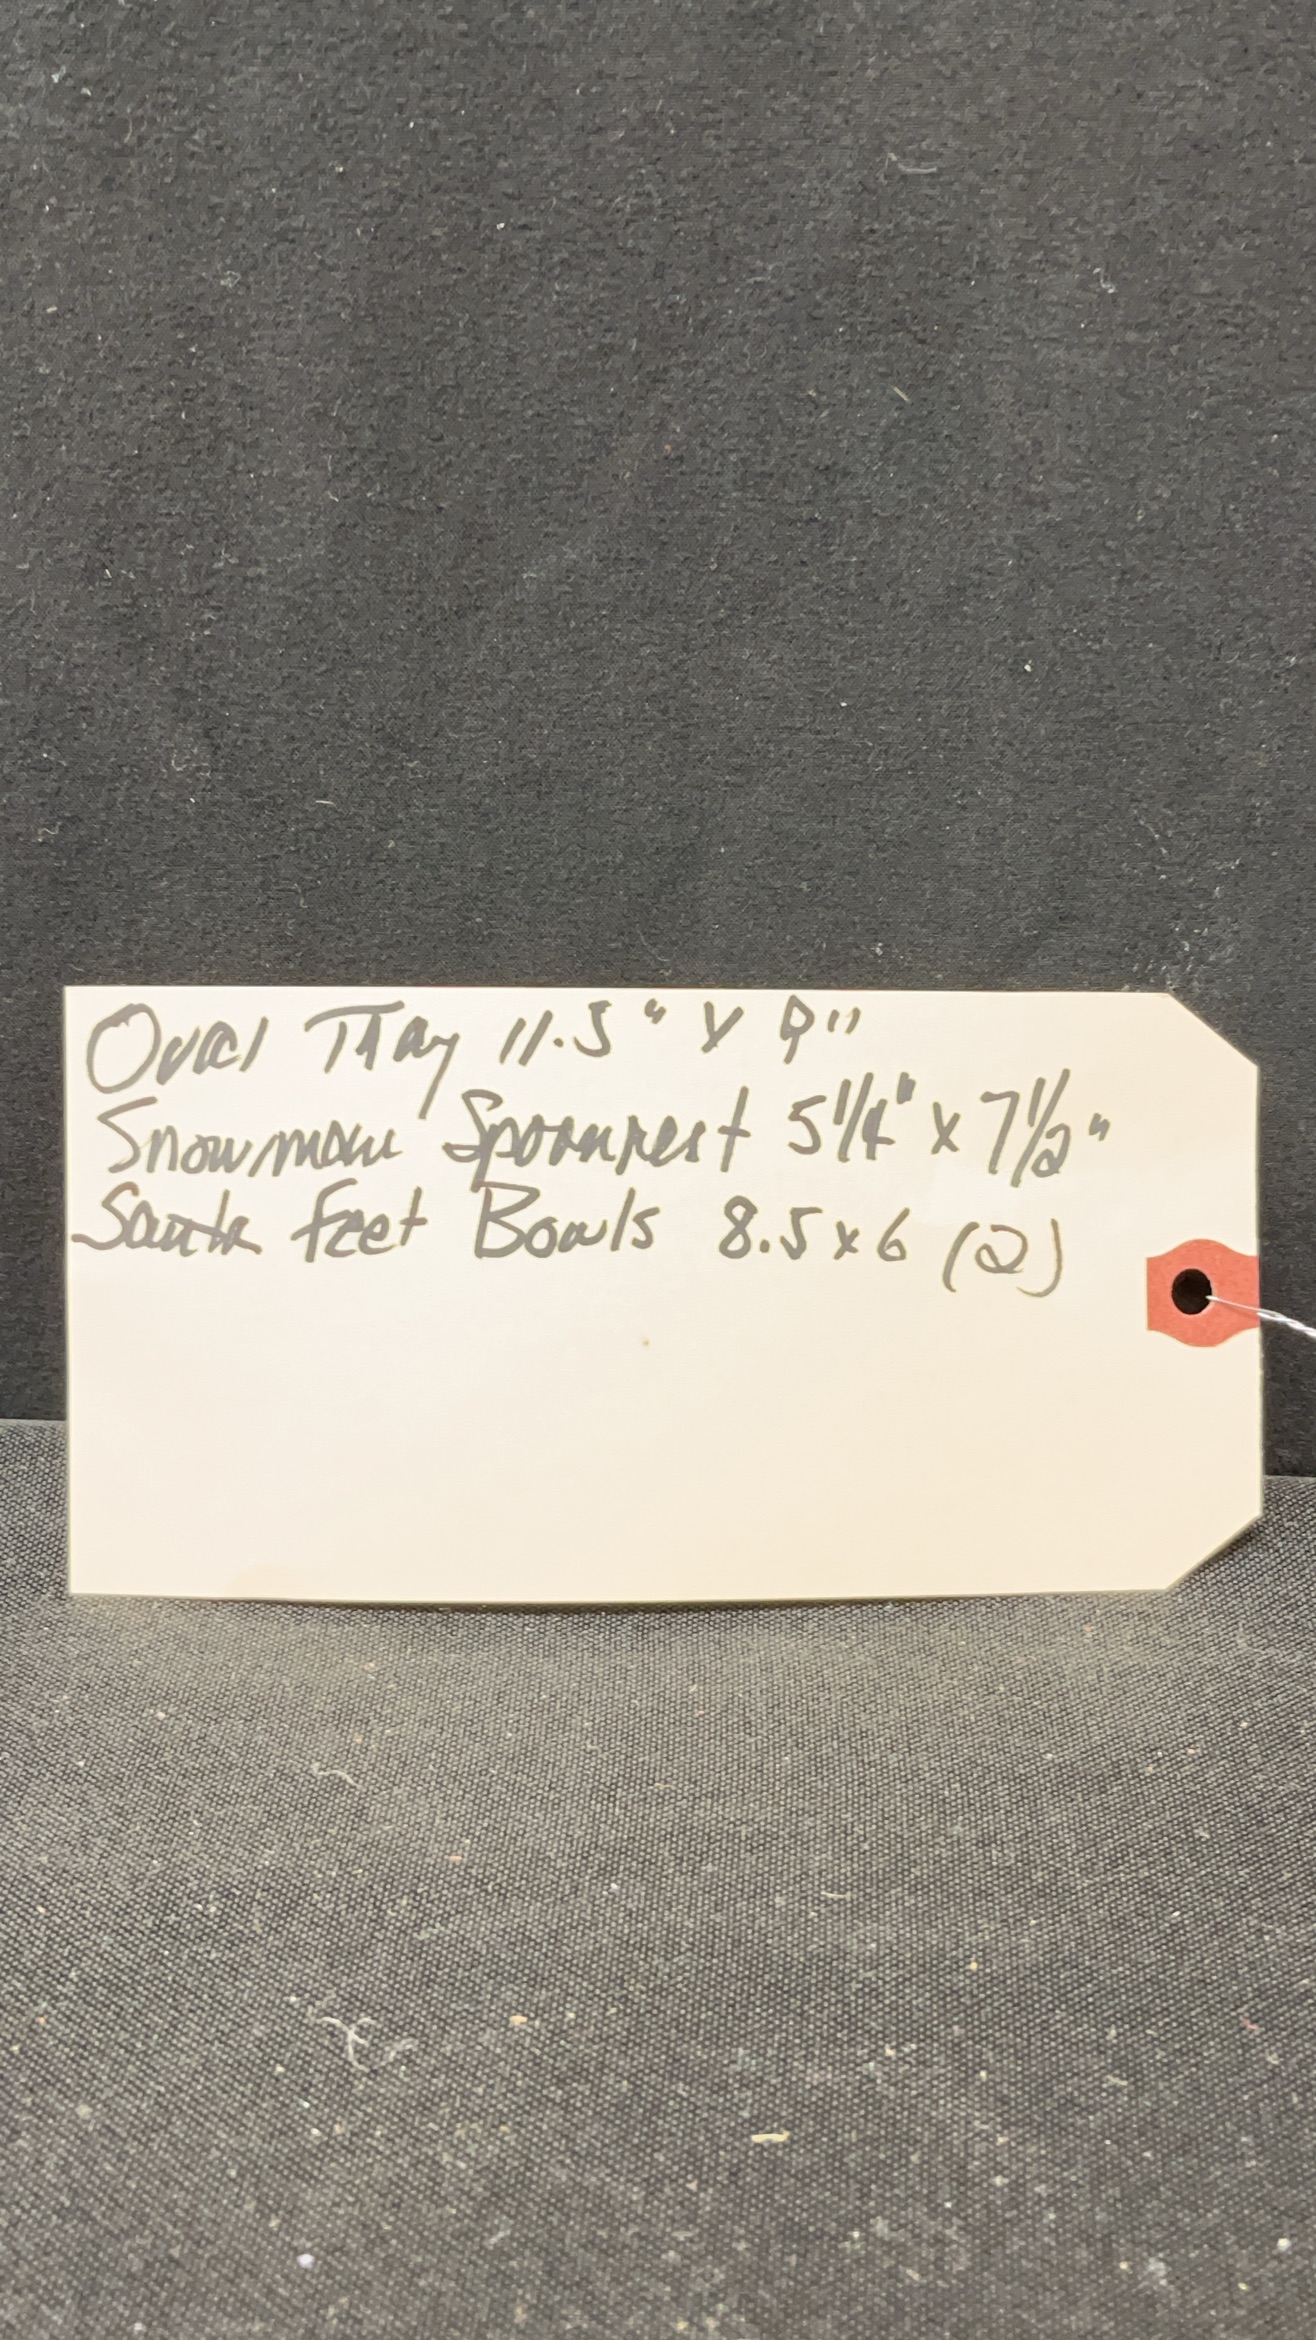 Oval Tray 11.5" x 9"
Snowman Spoonrest 5 1/4" x 7 1/2"
Santa Feet Bowls 8.5 x 6 (2)